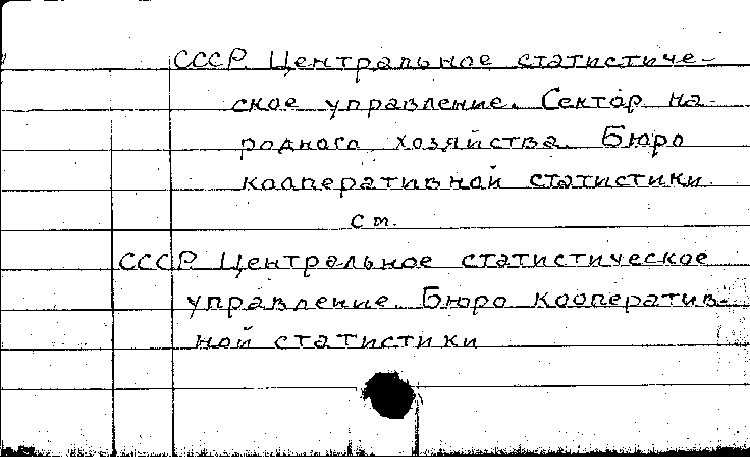 СССР. Центральное статистиче-
ское управление. Сектор на-
родного хозяйства. Бюро
кооперативной статистики
см.
СССР. Центральное статистическое
управление. Бюро кооператив-
ной статистики